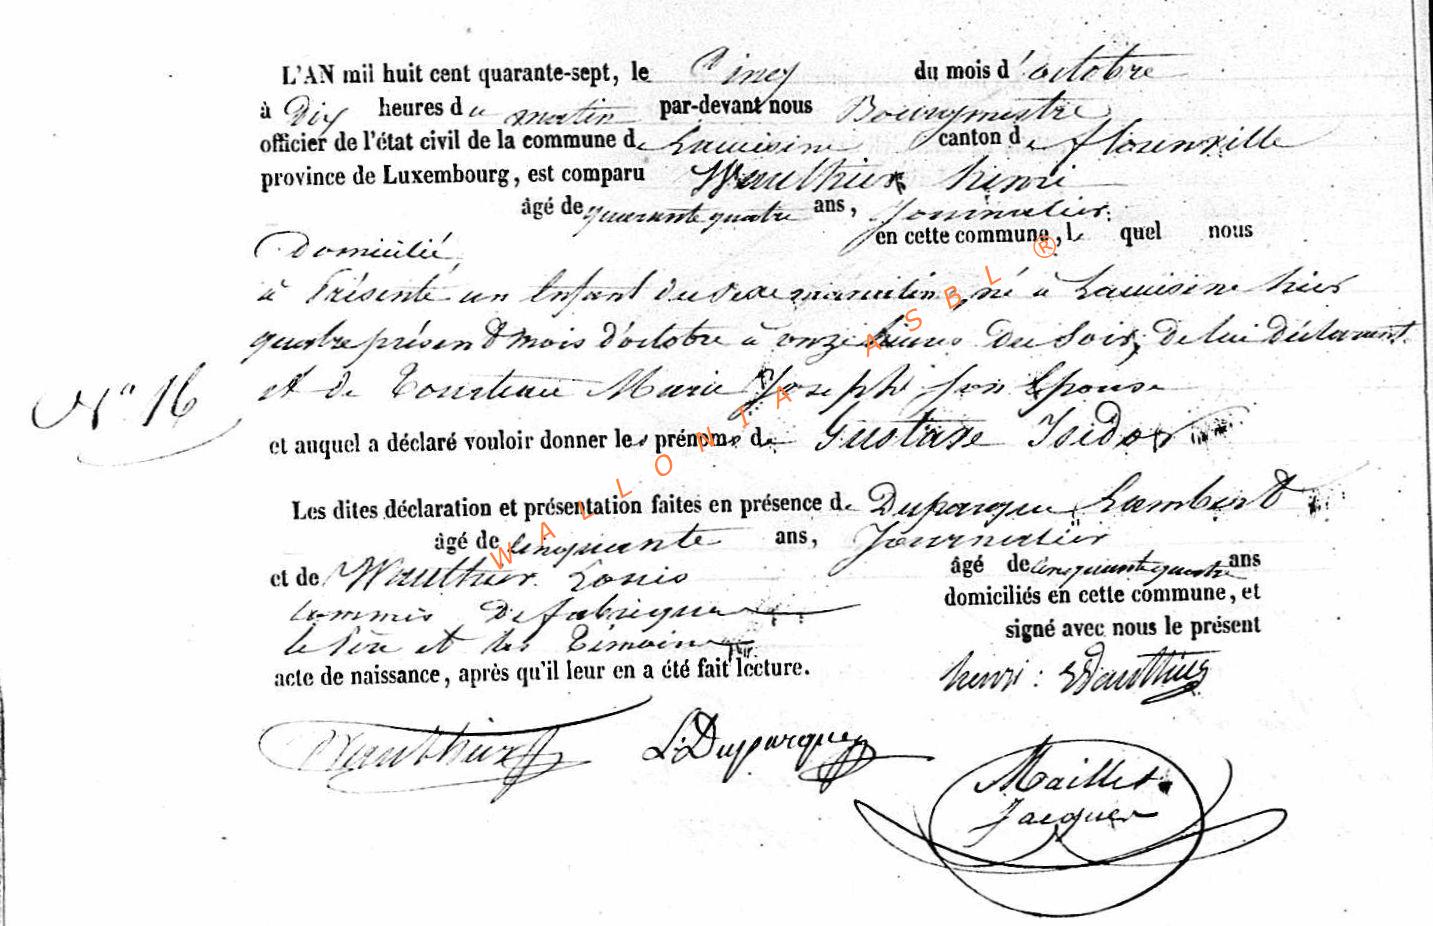 L'AN mil huit cent quarante-sept, le Cinq du mois d'octobre
à Dix heures du matin par-devant nous Bourgmestre
officier de l'état civil de la commune de Lacuisine canton de florenville
province de Luxembourg, est comparu Wauthier henri
âgé de quarante quatre ans, Journalier.
Domicilié en cette commune, L quel nous
à Présenté un Enfant du sexe masculin, né à Lacuisine hier
quatre présent mois d'octobre à onze heures du soir, de lui déclarant
N° 16 et de Tousteau Marie Joseph son Epouse
et auquel a déclaré vouloir donner les prénoms de Gustave Isidor
Les dites déclaration et présentation faites en présence de Duparque Lambert
âgé de cinquante ans, Journalier
et de Wauthier Louis âgé de cinquante quatre ans
commis De fabrique domiciliés en cette commune, et
le Père et les Témoins signé avec nous le présent
acte de naissance, après qu'il leur en a été fait lecture.
henri : Wauthier
Wauthier L. Duparque
Maillet
Jacques
WALLONIA ASBL ®